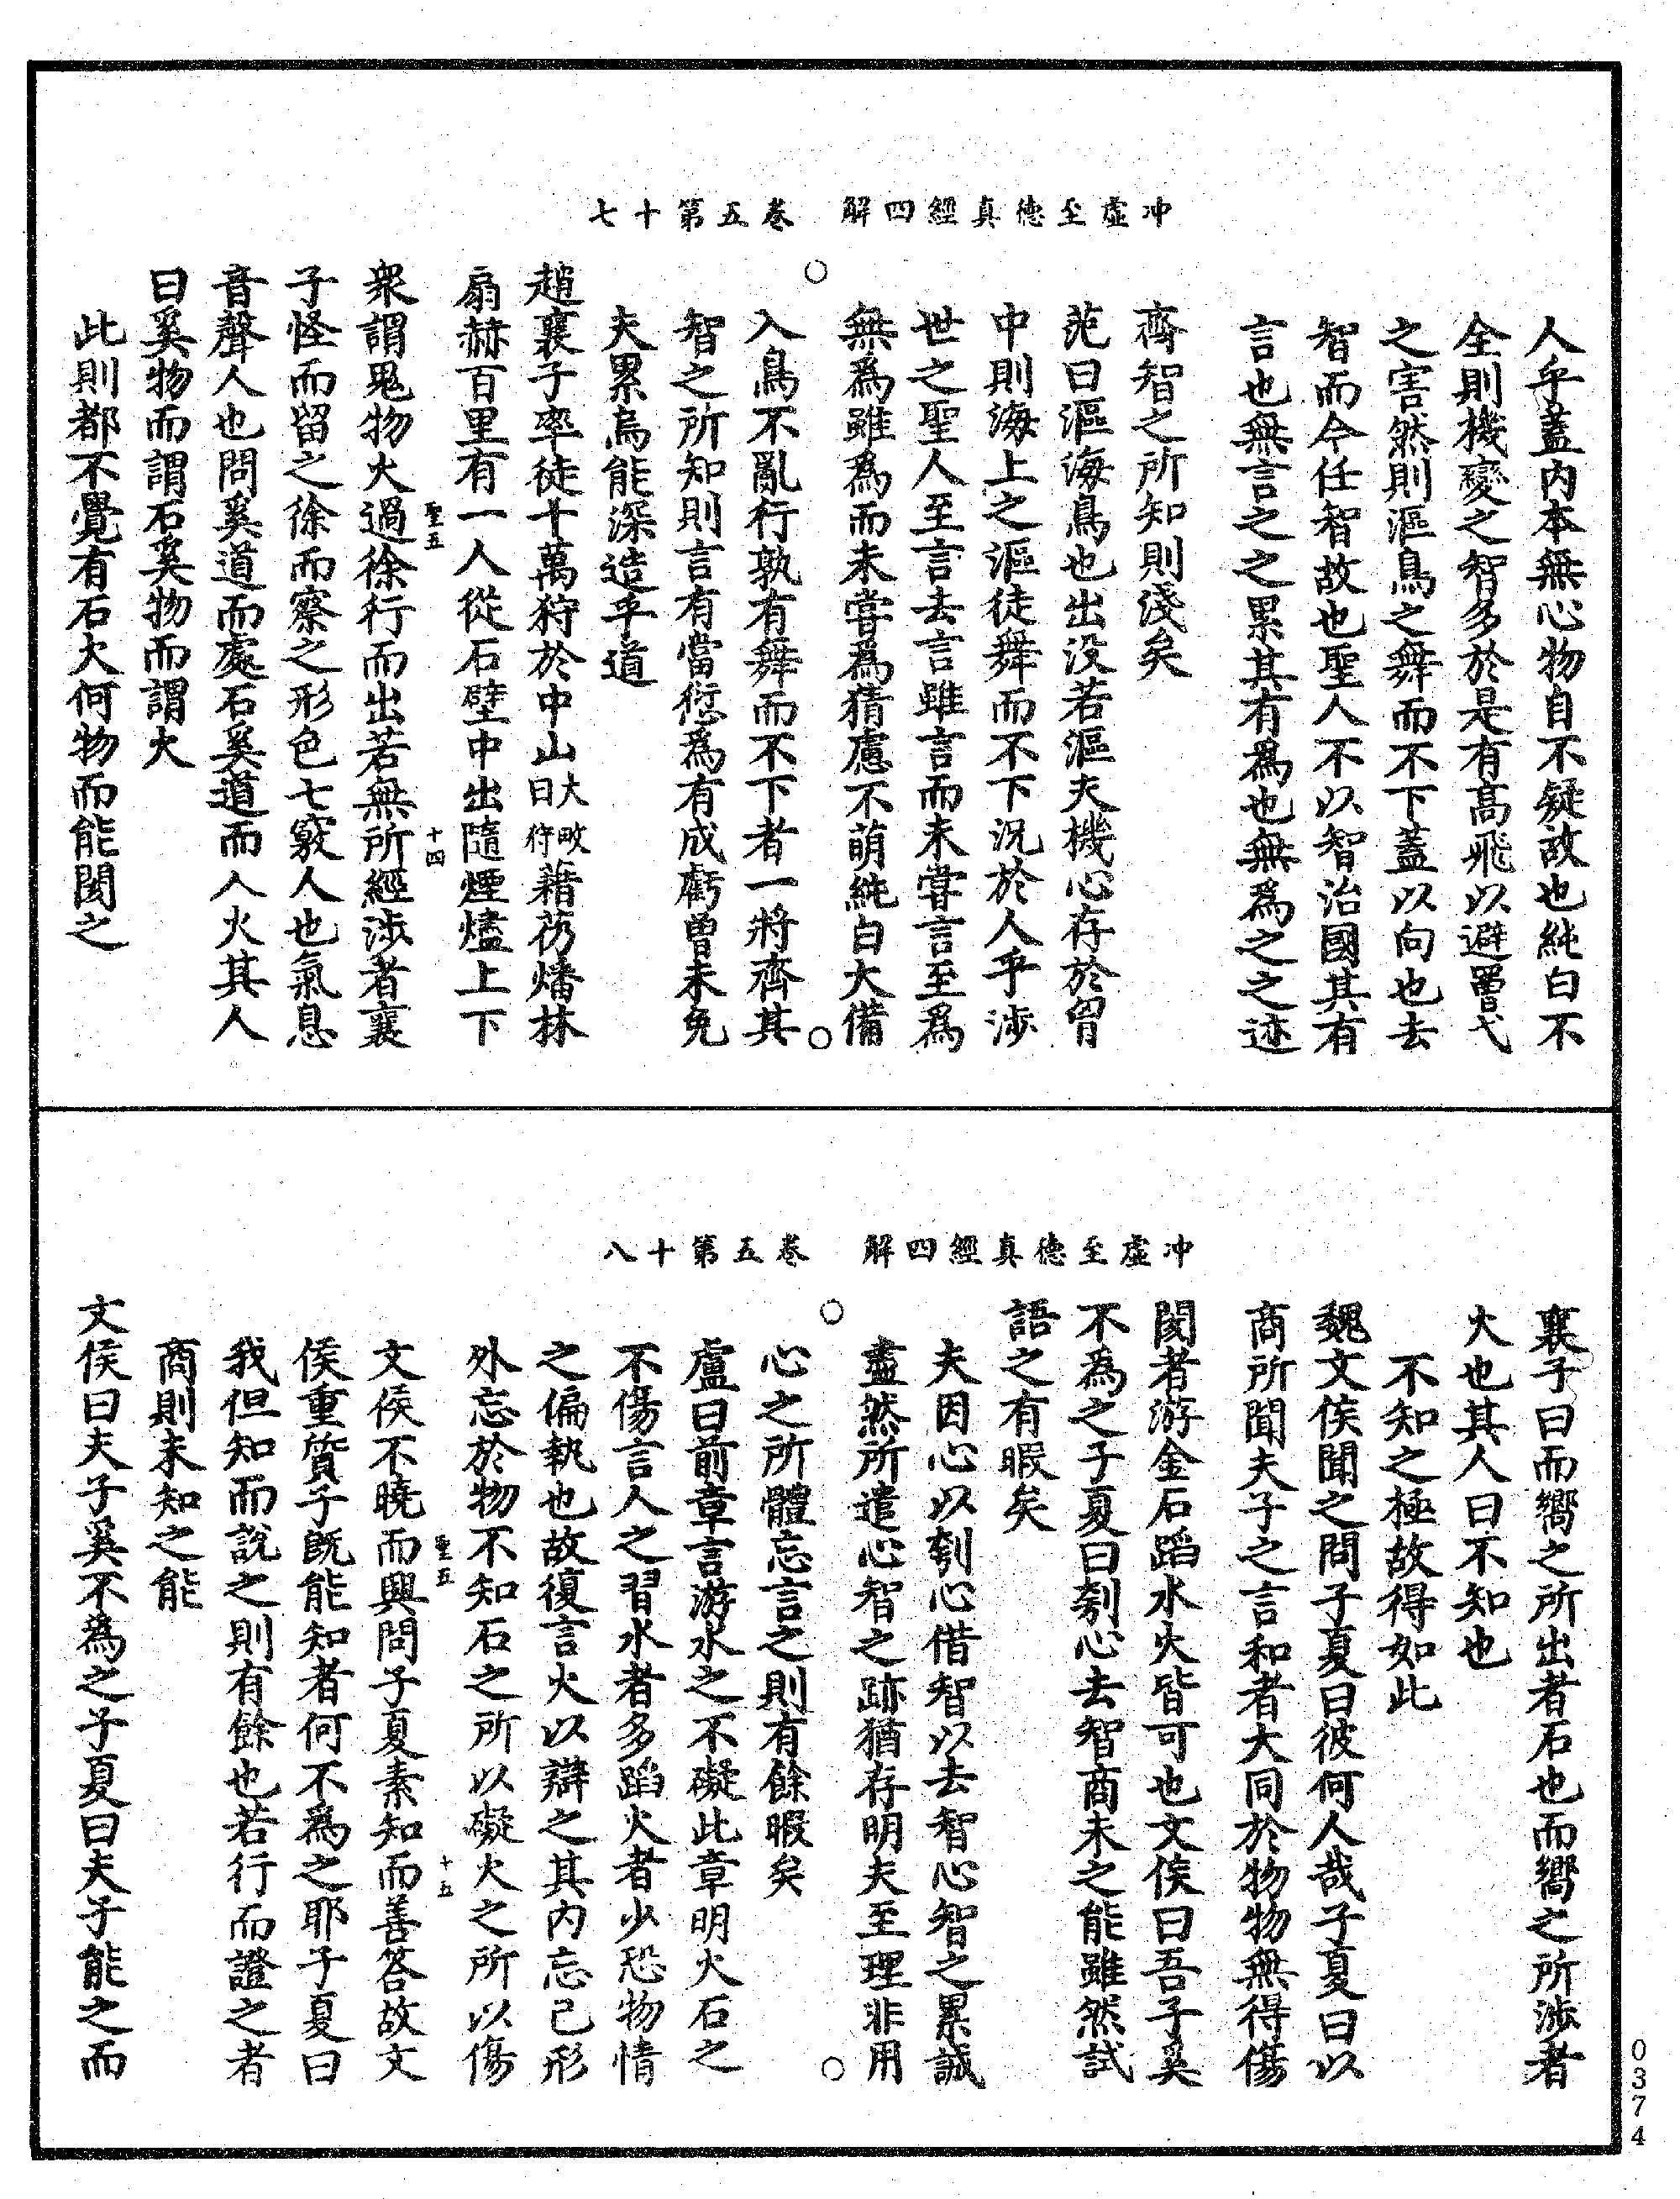 冲虛至德真經四解　卷五第十七
人乎蓋內本無心物自不疑故也純白不
全則機變之智多於是有高飛以避罾弋
之害然則漚鳥之舞而不下蓋以向也去
智而今任智故也聖人不以智治國其有
言也無言之之累其有爲也無爲之之迹
齊智之所知則淺矣
范曰漚海鳥也出没若漚夫機心存於胷
中則海上之漚徒舞而不下況於人乎涉
世之聖人至言去言雖言而未嘗言至爲
無爲雖爲而未嘗爲猜慮不萌純白大備
入鳥不亂行孰有舞而不下者一將齊其
智之所知則言有當愆爲有成虧曾未免
夫累烏能深造乎道
趙襄子率徒十萬狩於中山火畋曰狩藉芿燔林
扇赫百里有一人從石壁中出隨煙燼上下
衆謂鬼物火過徐行而出若無所經涉者襄
聖五　十四
子怪而留之徐而察之形色七竅人也氣息
音聲人也問奚道而處石奚道而入火其人
曰奚物而謂石奚物而謂火
此則都不覺有石火何物而能閡之
冲虛至德真經四解　卷五第十八
襄子曰而嚮之所出者石也而嚮之所涉者
火也其人曰不知也
不知之極故得如此
魏文侯聞之問子夏曰彼何人哉子夏曰以
商所聞夫子之言和者大同於物物無得傷
閡者游金石蹈水火皆可也文侯曰吾子奚
不為之子夏曰刳心去智商未之能雖然試
語之有暇矣
夫因心以刳心借智以去智心智之累誠
盡然所遣心智之跡猶存明夫至理非用
心之所體忘言之則有餘暇矣
盧曰前章言游水之不礙此章明火石之
不傷言人之習水者多蹈火者少恐物情
之偏執也故復言火以辯之其內忘己形
外忘於物不知石之所以礙火之所以傷
文侯不曉而興問子夏素知而善答故文
聖五　十五
侯重質子既能知者何不爲之耶子夏曰
我但知而說之則有餘也若行而證之者
商則未知之能
文侯曰夫子奚不為之子夏曰夫子能之而
0374